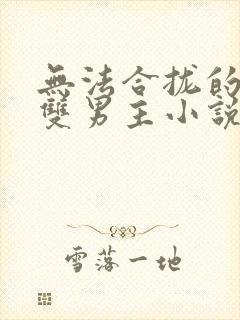 無法合拢的
雙男主小說
雪落一地